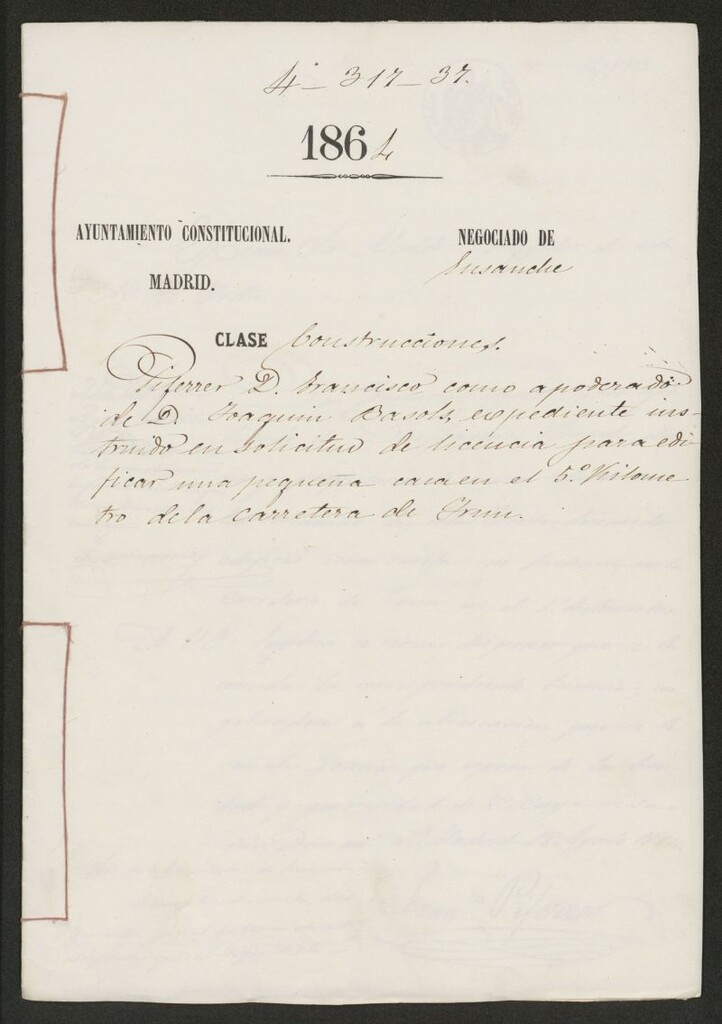 4-317-37.
1864
AYUNTAMIENTO CONSTITUCIONAL.
MADRID.
NEGOCIADO DE
Ensanche
CLASE Construcciones.
Piferrer D. Francisco como apoderado
de D. Joaquin Basols, expediente ins-
truido en solicitud de licencia para edi
ficar una pequeña casa en el 5.º Kilome
tro de la carretera de Irun.